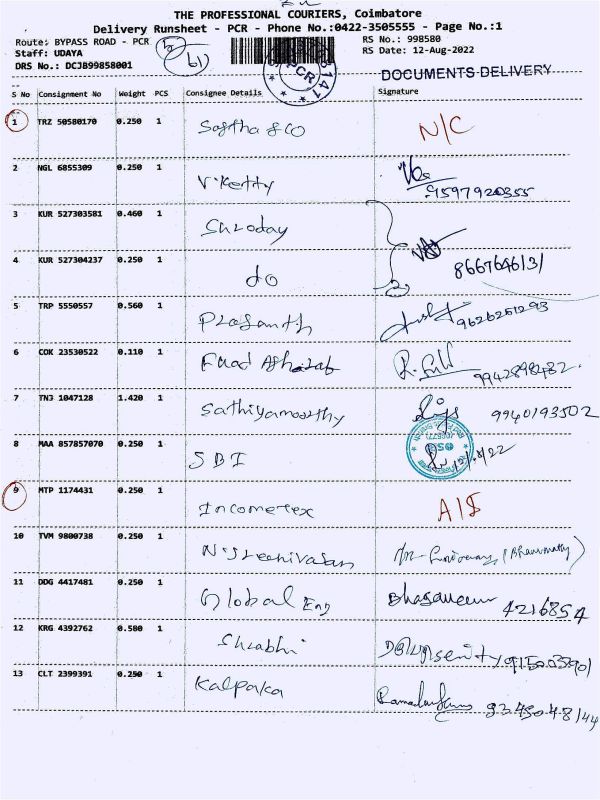 THE PROFESSIONAL COURIERS, Coimbatore
Delivery Runsheet - PCR - Phone No.:0422-3505555 - Page No.:1
Route: BYPASS ROAD - PCR RS No.: 998580
Staff: UDAYA RS Date: 12-Aug-2022
DRS No.: DCJB99858001
PCR 6141
DOCUMENTS DELIVERY
S No Consignment No Weight PCS Consignee Details Signature
1 TRZ 50580170 0.250 1 Sastha & CO N/C
2 NGL 6855309 0.250 1 V.Ketty 9597920355
3 KUR 527303581 0.460 1 Shroday
4 KUR 527304237 0.250 1 do 8667646131
5 TRP 5550557 0.560 1 Prasanth 9626251293
6 COK 23530522 0.110 1 Fuad 9942898482
7 TNJ 1047128 1.420 1 Sathiyamoorthy 9940193502
8 MAA 857857070 0.250 1 SBI
9 MTP 1174431 0.250 1 Incometex A/S
10 TVM 9800738 0.250 1 N.Sreenivasan
11 DDG 4417481 0.250 1 Global Eng 4216854
12 KRG 4392762 0.580 1 Shrabhi
13 CLT 2399391 0.250 1 Kalpaka